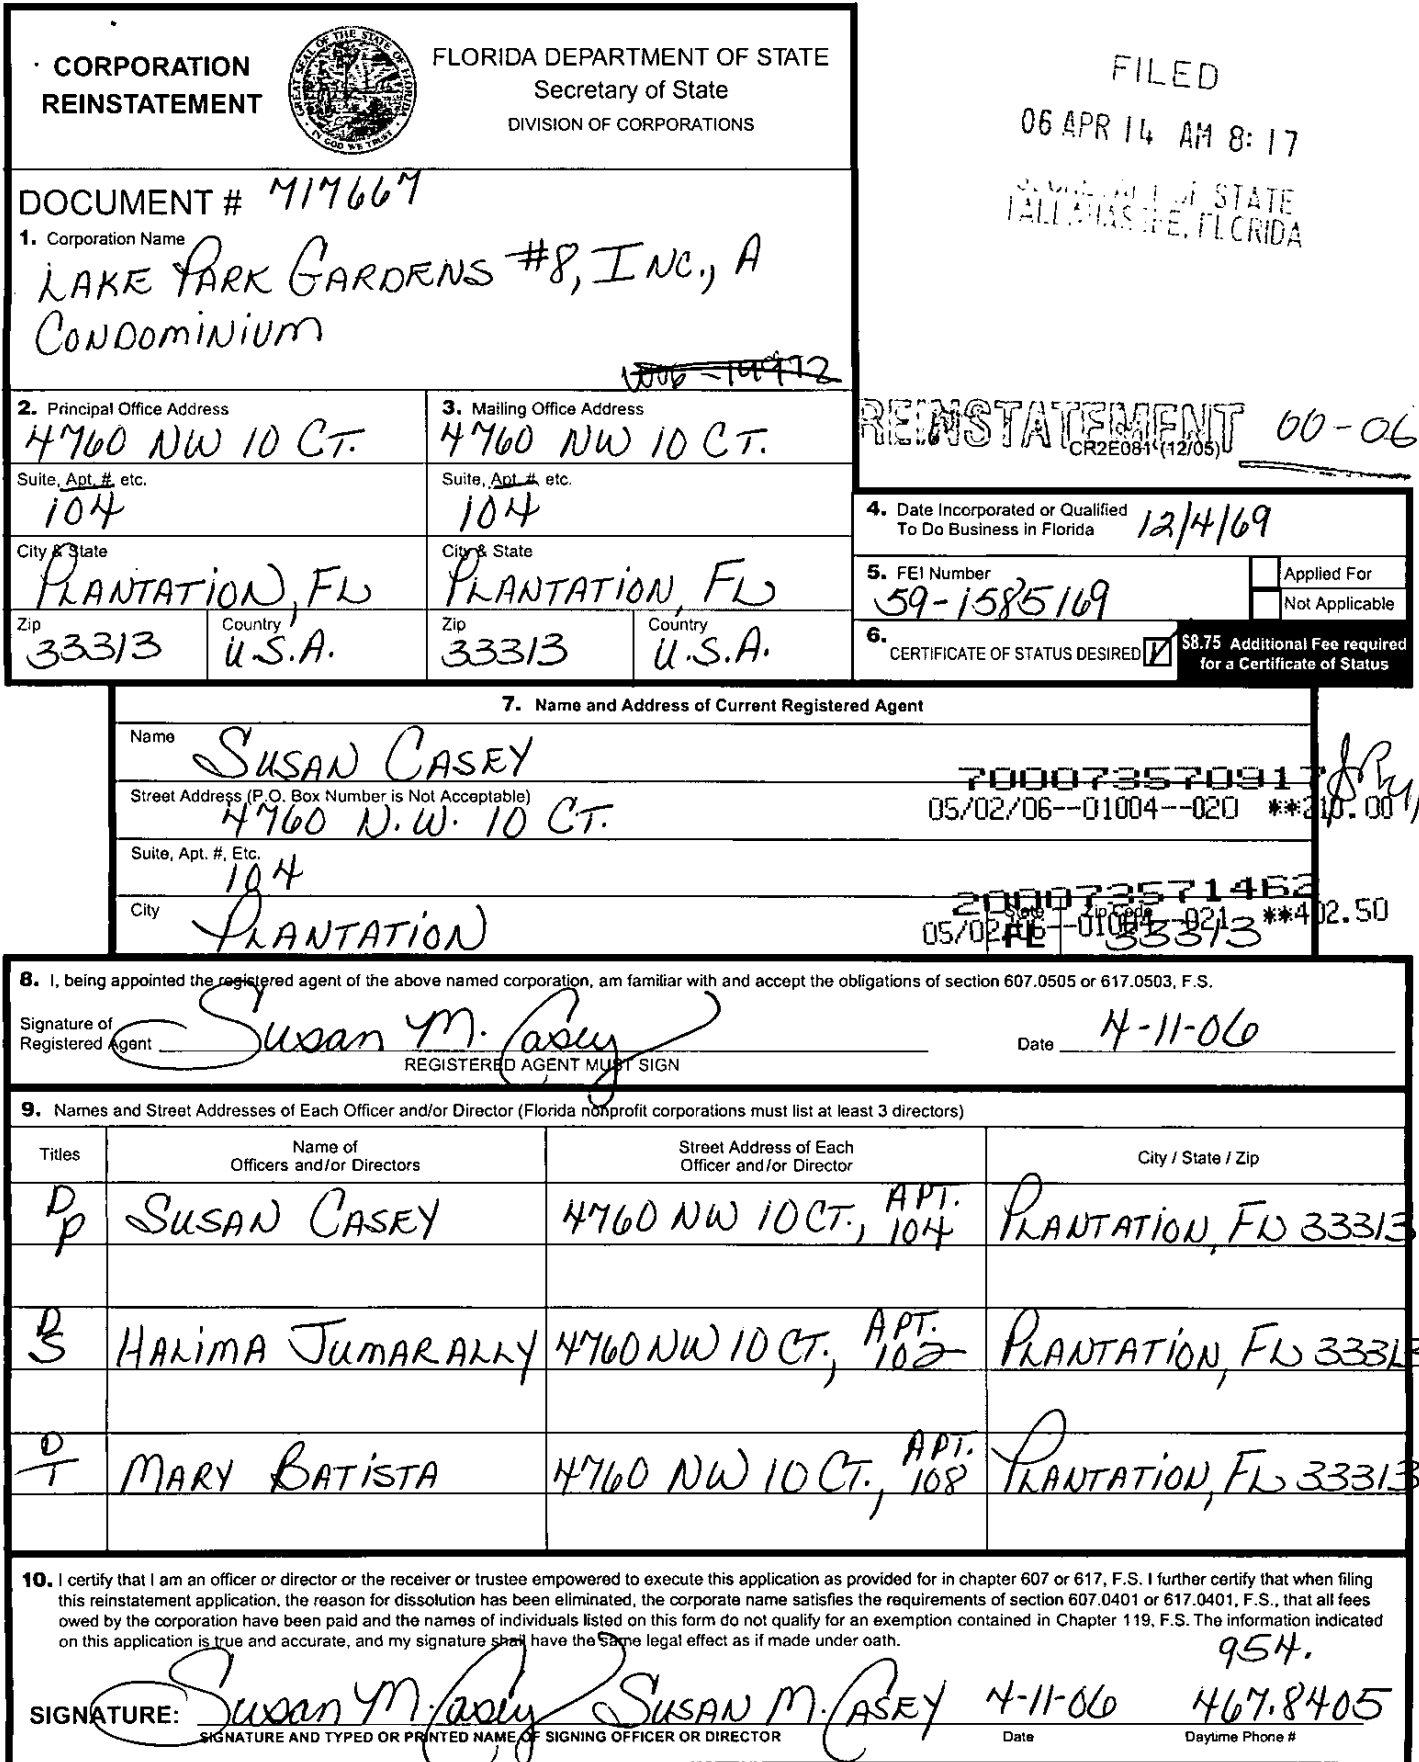 CORPORATION
REINSTATEMENT
FLORIDA DEPARTMENT OF STATE
Secretary of State
DIVISION OF CORPORATIONS
FILED
06 APR 14 AM 8:17
OF STATE
TALLAHASSEE, FLORIDA
DOCUMENT # 717667
1. Corporation Name
LAKE PARK GARDENS #8, INC., A
CONDOMINIUM
W06-14972
2. Principal Office Address
4760 NW 10 CT.
3. Mailing Office Address
4760 NW 10 CT.
REINSTATEMENT 00-06
CR2E081 (12/05)
Suite, Apt. #, etc.
104
Suite, Apt. #, etc.
104
4. Date Incorporated or Qualified
To Do Business in Florida 12/4/69
City & State
PLANTATION, FL
City & State
PLANTATION, FL
5. FEI Number
59-1585169
Applied For
Not Applicable
Zip
33313
Country
U.S.A.
Zip
33313
Country
U.S.A.
6. CERTIFICATE OF STATUS DESIRED
$8.75 Additional Fee required
for a Certificate of Status
7. Name and Address of Current Registered Agent
Name
SUSAN CASEY
700073570917
Street Address (P.O. Box Number is Not Acceptable)
4760 N.W. 10 CT.
05/02/06--01004--020 **210.00
Suite, Apt. #, Etc.
104
200073571462
City
PLANTATION
State
FL
Zip Code
33313
05/02/06--01004--021 **402.50
8. I, being appointed the registered agent of the above named corporation, am familiar with and accept the obligations of section 607.0505 or 617.0503, F.S.
Signature of
Registered Agent Susan M. Casey
REGISTERED AGENT MUST SIGN
Date 4-11-06
9. Names and Street Addresses of Each Officer and/or Director (Florida nonprofit corporations must list at least 3 directors)
Titles
Name of
Officers and/or Directors
Street Address of Each
Officer and/or Director
City / State / Zip
D
P SUSAN CASEY 4760 NW 10 CT., APT. 104 PLANTATION, FL 33313
D
S HALIMA JUMARALLY 4760 NW 10 CT., APT. 102 PLANTATION, FL 33313
D
T MARY BATISTA 4760 NW 10 CT., APT. 108 PLANTATION, FL 33313
10. I certify that I am an officer or director or the receiver or trustee empowered to execute this application as provided for in chapter 607 or 617, F.S. I further certify that when filing
this reinstatement application, the reason for dissolution has been eliminated, the corporate name satisfies the requirements of section 607.0401 or 617.0401, F.S., that all fees
owed by the corporation have been paid and the names of individuals listed on this form do not qualify for an exemption contained in Chapter 119, F.S. The information indicated
on this application is true and accurate, and my signature shall have the same legal effect as if made under oath.
954.
SIGNATURE: Susan M. Casey SUSAN M. CASEY 4-11-06 467.8405
SIGNATURE AND TYPED OR PRINTED NAME OF SIGNING OFFICER OR DIRECTOR
Date
Daytime Phone #